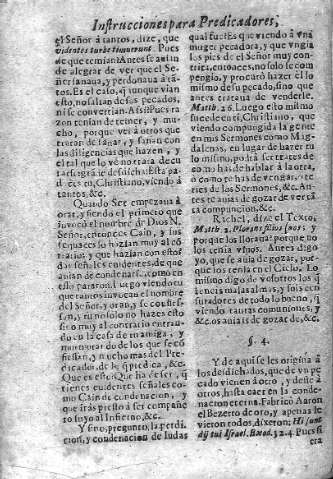 Instrucciones para Predicadores,
el Señor à tantos, dize, que
videntes turbę timuerunt. Pues
de que temian? Antes se auian
de alegrar de ver que el Se-
ñor sanaua, y perdonaua à ta-
tos. Es el caso, q aunque vian
esto, no salian de sus pecados,
ni se conuertian. Assi Pues ra-
zon tenian de temer, y mu-
cho, porque ver à otros que
tratan de sanar, y sanan con
las diligencias que hazen, y
el tal que lo ve no trata de cu
rarse
pades tu, Christiano, viendo à
tantos, &c.
Quando Set empezaua à
orar, y siendo el primero que
inuocò el nombre de Dios N.
Señor, entonces Cain, y sus
sequaces so hazian muy al cõ
trario, y que hazian con esto?
dar señales euidentes de que
auian de condenarse, como en
esto pararon. Luego viendo tu
que tantos inuocan el nombre
del Señor, y oran, y se confies-
san, y tu no solo no hazes esto
sino muy al contrario entran-
do en la casa de tu amiga, y
murmurando de los que se cõ
fiessan, y mucho mas del Pre-
dicador, de lo q predica, &c.
Que es esto? Que ha de ser, q
tienes euidentes señales co-
mo Cain de condenacion, y
que iràs presto à ser compañe
ro suyo al Infierno, &c.
Y sino, pregunto, la perdi-
cion, y condenacion de Iudas
qual fue? Es que viendo à vna
muger pecadora, y que vngia
los pies de el Señor muy con-
trita, entonces, no solo se com
pungio, y procurò hazer el lo
mismo de su pecado, sino que
antes trataua de venderle.
Math. 26. Luego esto mismo
sucede en ti, Christiano, que
viendo compungida la gente
en mis Sermones como Mag-
dalenas, en lugar de hazer tu
lo mismo, podrà ser trates de
como has de hablar à la otra,
ò como te has de vengar, ò re-
tires de los Sermones, &c. An-
tes te auias de gozar de ver sã
ta compuncion, &c.
Richel, dize el Texto,
Math. 2. Plorans filios suos; y
por que los lloraua? porque no
los tenia viuos. Antes digo
yo, que se auia de gozar, por-
que los tenia en el Cielo. Lo
mismo digo de vosotros los q
teneis malas almas, y sois cen
suradores de todo lo bueno, q
viendo tantas comuniones, y
&c. os auiais de gozar de, &c.
§. 4.
Y de aqui se les origina à
los desdichados, que de vn pe
cado vienen à otro, y deste à
otros, hasta caer en la conde-
nacion eterna. Fabricò Aaron
el Bezerro de oro, y apenas le
vieron todos, dixeron: Hi sunt
dij tui Israel. Exod. 32. 4 Pues si
era